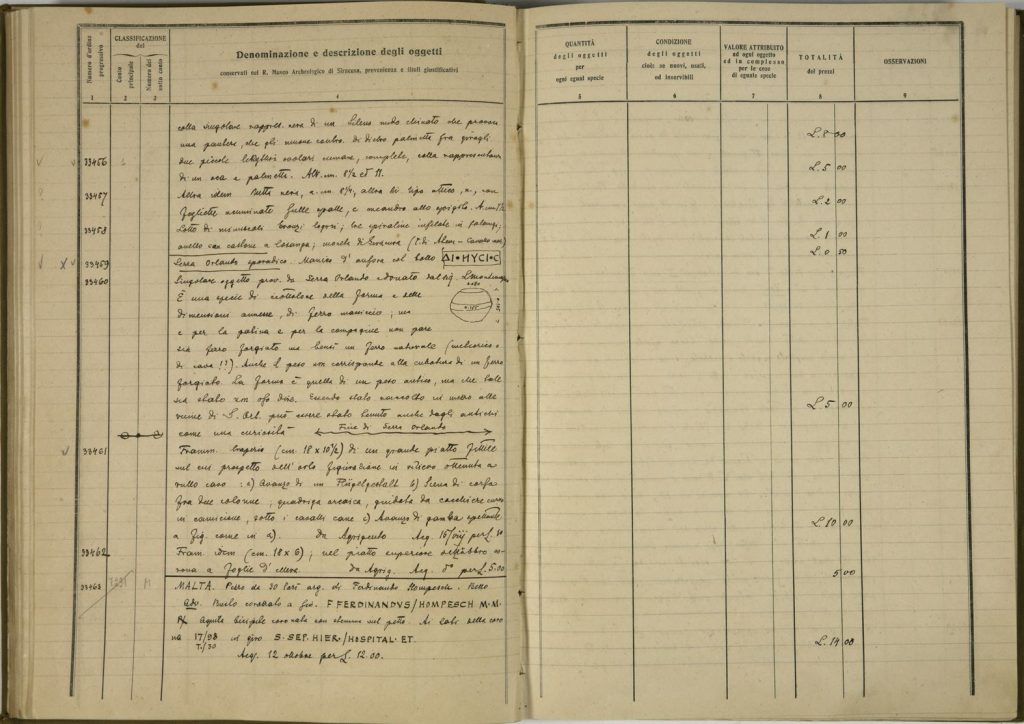 Numero d'ordine progressivo
CLASSIFICAZIONE del
Conto principale
Numero del sotto conto
Denominazione e descrizione degli oggetti
conservati nel R. Museo Archeologico di Siracusa, provenienza e titoli giustificativi
QUANTITÀ degli oggetti per ogni egual specie
CONDIZIONE degli oggetti cioè: se nuovi, usati, od inservibili
VALORE ATTRIBUITO ad ogni oggetto ed in complesso per le cose di eguale specie
TOTALITÀ dei prezzi
OSSERVAZIONI
1 2 3 4 5 6 7 8 9
colla singolare nera di un Sileno nudo chinato che
una pantera, che gli muove contro. di dietro palmette fra
L. 8 00
33456 due piccole lekythoi nerane, complete, colla
di un oca e palmette. Alt. cm. 8½ et 11.
L. 5 00
33457 Altra idem tutta nera, a. cm 8¼, altra di tipo attico, con
foglietta sulle spalle, e meandro allo spigolo.
L. 2 00
33458 Lotto di minuscoli bronzi logori; tre spiraline infilate in
anello con a losanga;
L. 1 00
33459 Serra Orlando sporadico. Manico d'anfora col bollo ΔI•HYCI•C
L. 0 50
33460 Singolare oggetto prov. da Serra Orlando e donato dal sig.
È una specie di ciottolone della forma e delle
dimensioni annesse, di ferro massiccio; ma
e per la patina e per la compagine non pare
sia ferro forgiato ma bensì un ferro naturale (meteorico o
di cava !?). Anche il peso non corrisponde alla cubatura di un ferro
forgiato. La forma è quella di un peso antico, ma che tale
sia stato non oso dire. Essendo stato raccolto in mezzo alle
rovine di S. Orl. può essere stato tenuto anche dagli antichi
L. 5 00
come una curiosità Fine di Serra Orlando
33461 Framm. (cm. 18 x 10½) di un grande piatto fittile
nel cui prospetto dell'orlo figurazione in rilievo ottenuta a
rullo cavo : a) Avanzo di un Flügelgestalt b) Scena di corsa
fra due colonne; quadriga arcaica, guidata da cocchiere curvo
in camicione, sotto i cavalli cane c) Avanzo di gamba spettante
L. 10 00
a fig. come in a). Da Agrigento Acq. 15/viij per L. 10
33462 Fram. idem (cm. 18 x 6); nel piatto superiore
a foglie d'edera. Da Agrig. Acq. per L. 5.00
5 00
33463 MALTA. Pezzo da 30 Tarì arg. di Ferdinando Hompesch. Bello
Busto corazzato a sin. F FERDINANDVS/HOMPESCH M.M.
Aquila bicipite coronata con stemma sul petto. Ai lati della coro
na 17/98 T./30 in giro S. SEP. HIER./HOSPITAL. ET.
L. 14 00
Acq. 12 ottobre per L. 12.00.